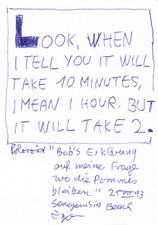 LOOK, WHEN
I TELL YOU IT WILL
TAKE 10 MINUTES,
I MEAN 1 HOUR. BUT
IT WILL TAKE 2.
"Bob's Erklärung
auf meine Frage
wo die Pommes
bleiben."
Beach